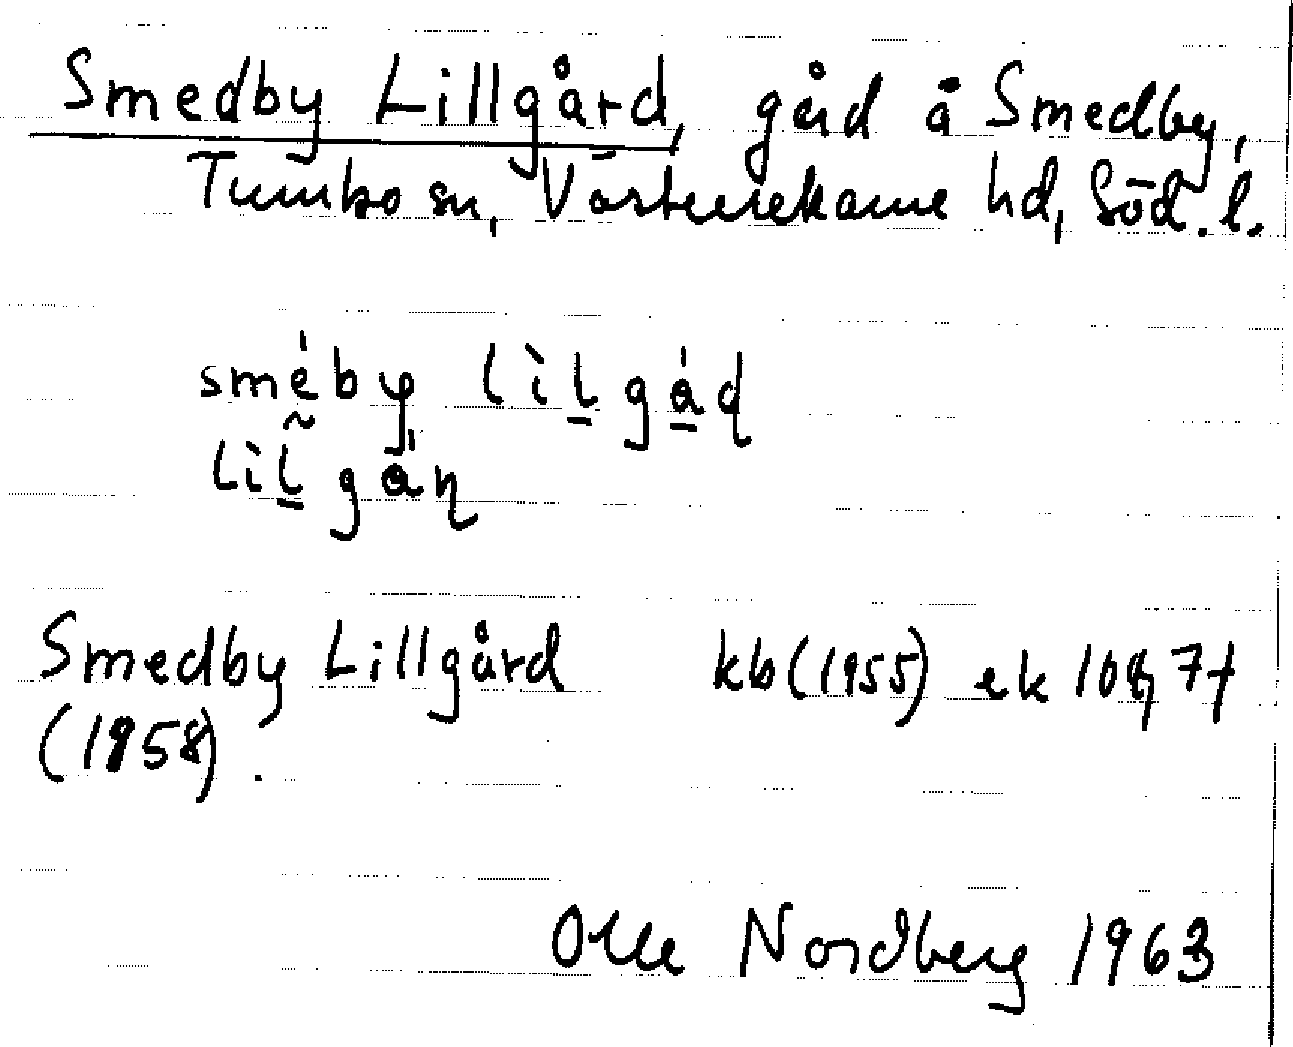 Smedby Lillgård, gård å Smedby,
Tumbo sn, Västerrekarne hd, Söd. l.
sméby lìḻgá̱ɖ
lìḻ̃gåɳ
Smedby Lillgård kb (1955) ek 10g, 7f
(1958).
Olle Nordberg 1963